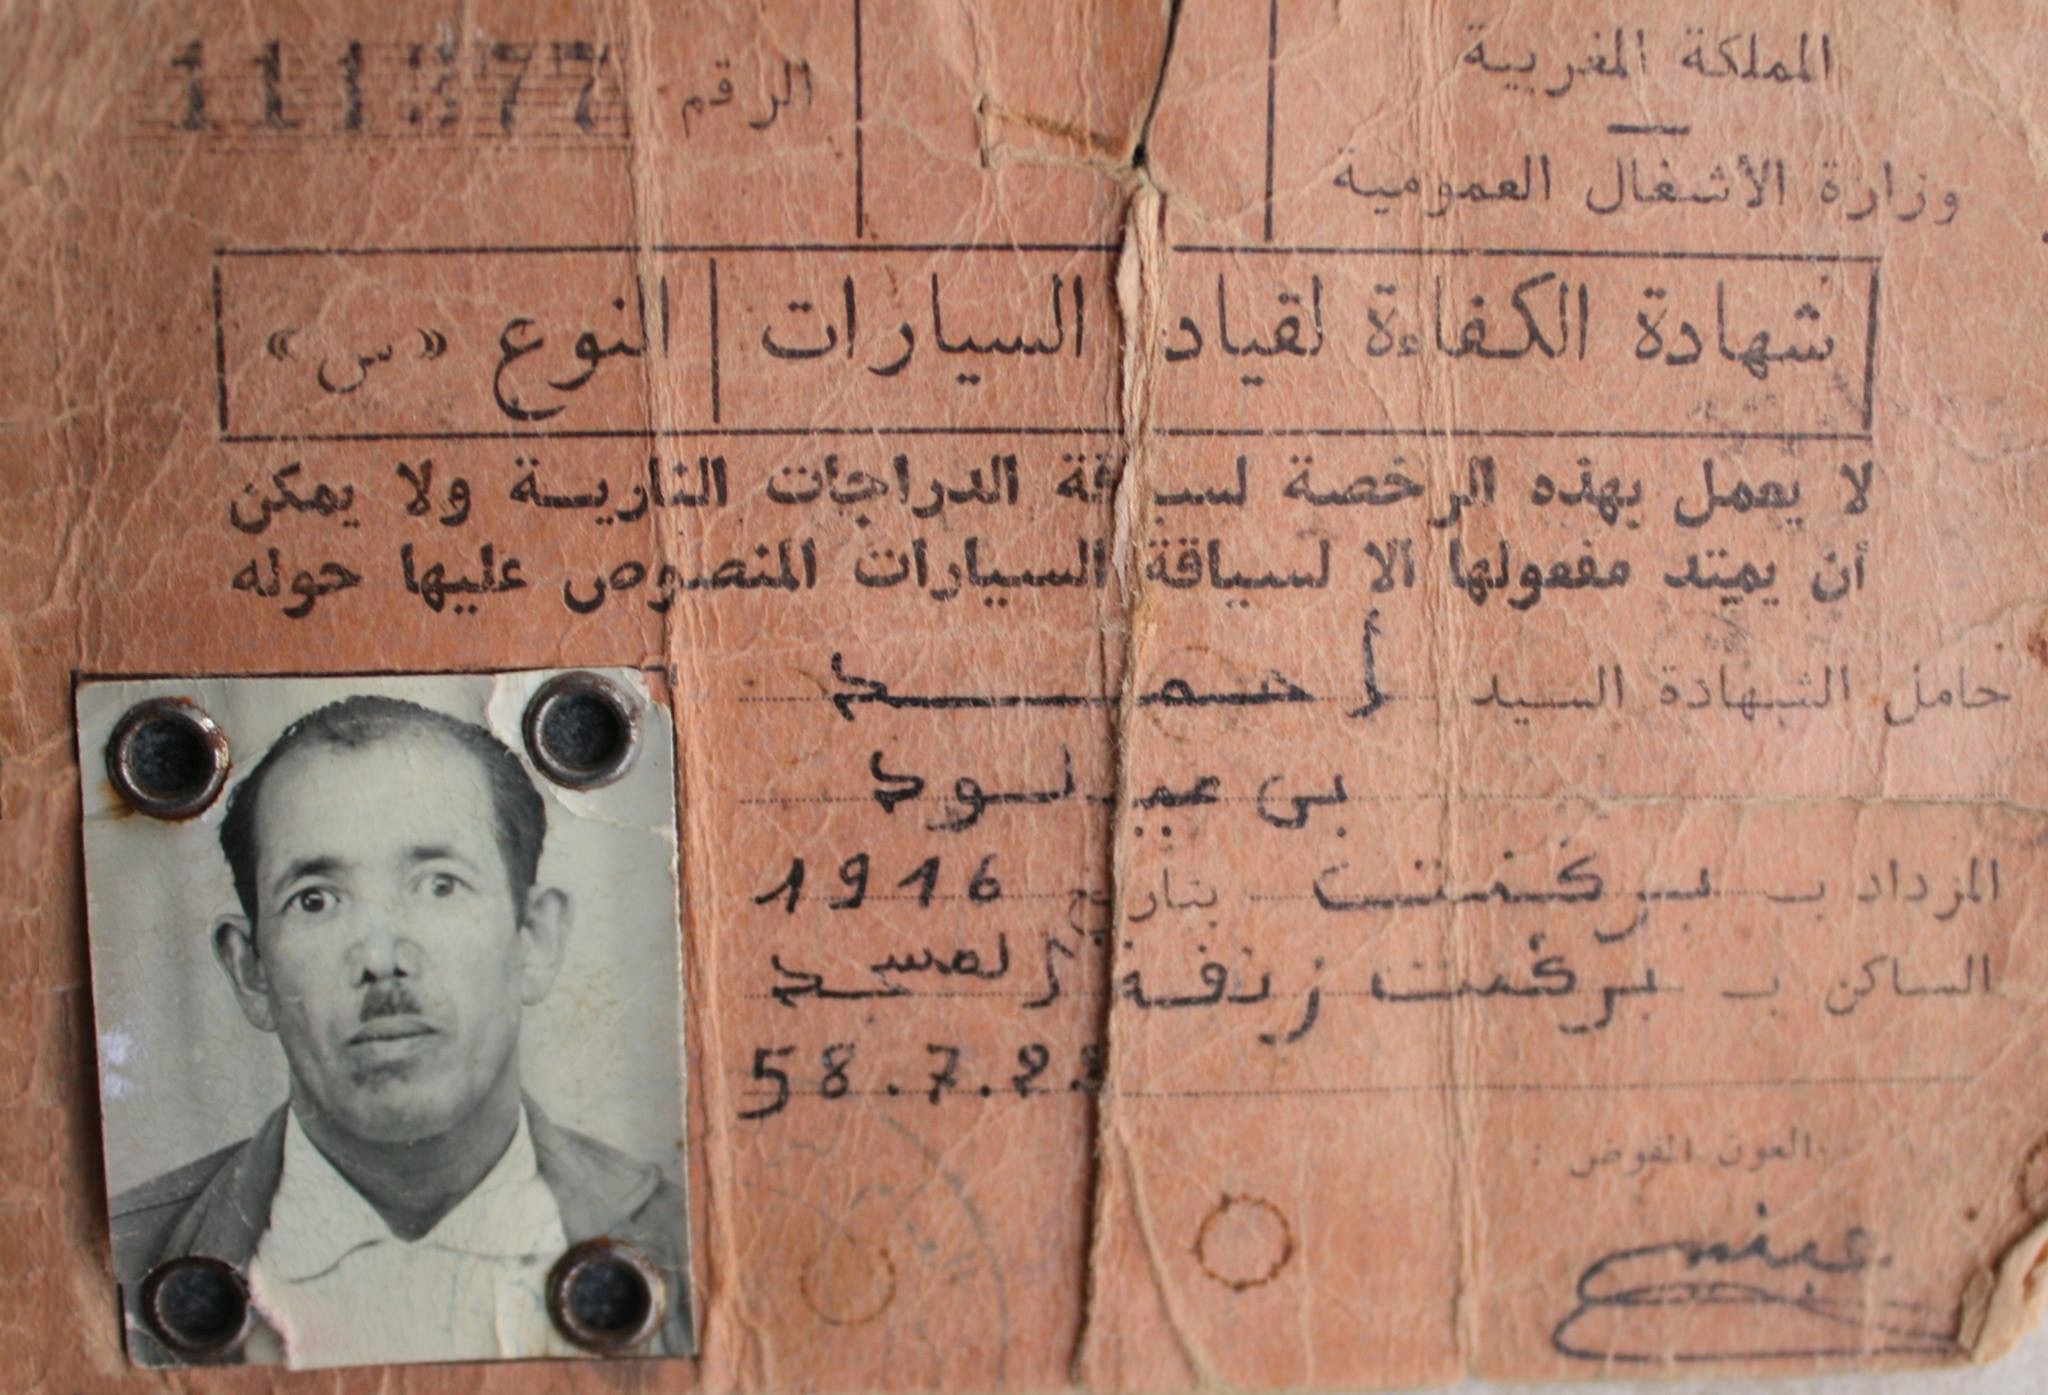 المملكة المغربية
وزارة الأشغال العمومية
الرقم 111377
شهادة الكفاءة لقيادة السيارات | النوع «س»
لا يعمل بهذه الرخصة لسياقة الدراجات النارية ولا يمكن
أن يمتد مفعولها الا لسياقة السيارات المنصوص عليها حوله
حامل الشهادة السيد احمد
بن عبـ
المزداد ب بركنت بتاريخ 1916
الساكن ب بركنت زنقة المسيد
58.7.22
العون المفوض :